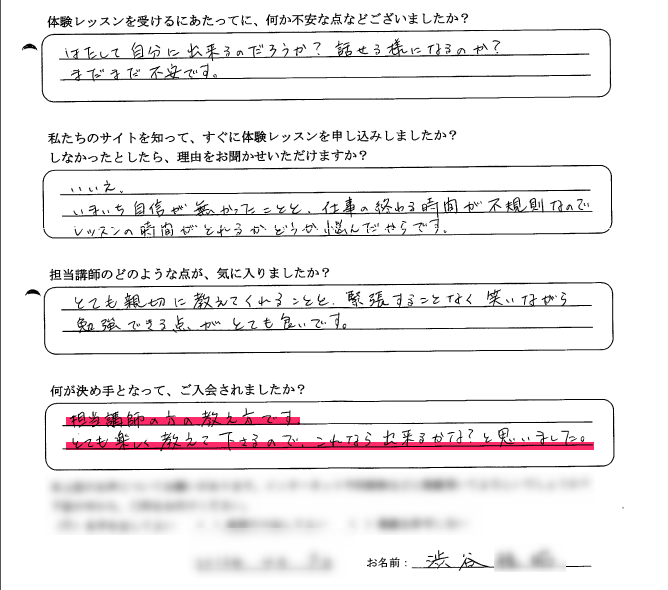 体験レッスンを受けるにあたってに、何か不安な点などございましたか？
はたして自分に出来るのだろうか？話せる様になるのか？
まだまだ不安です。
私たちのサイトを知って、すぐに体験レッスンを申し込みしましたか？
しなかったとしたら、理由をお聞かせいただけますか？
いいえ、
いまいち自信が無かったことと、仕事の終わる時間が不規則なので
レッスンの時間がとれるかどうか悩んだからです。
担当講師のどのような点が、気に入りましたか？
とても親切に教えてくれることと、緊張することなく笑いながら
勉強できる点がとても良いです。
何が決め手となって、ご入会されましたか？
担当講師の方の教え方です。
とても楽しく教えて下さるので、これなら出来るかな？と思いました。
お名前： 渋谷